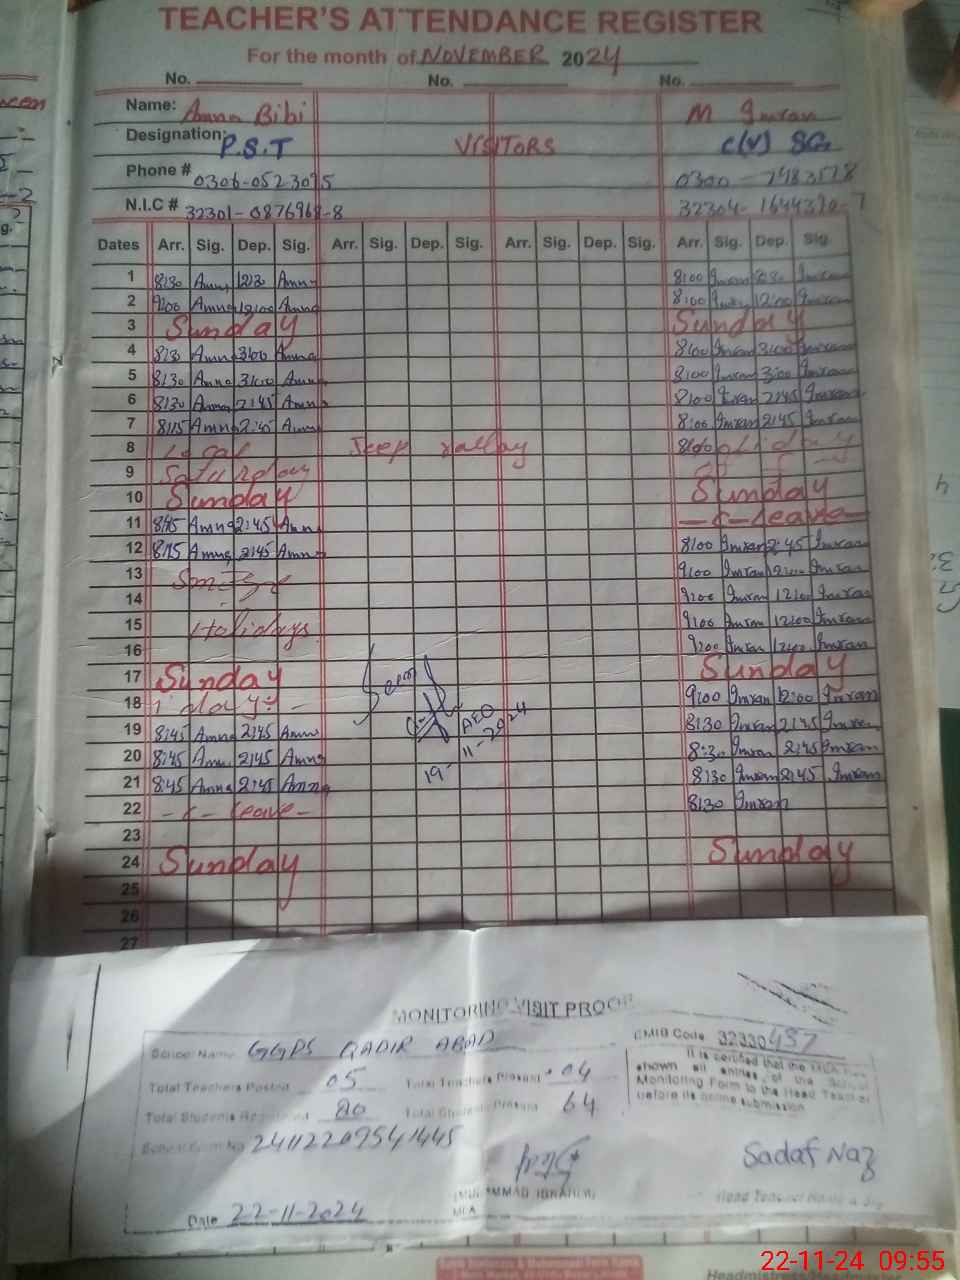 TEACHER'S ATTENDANCE REGISTER
For the month of NOVEMBER 2024
No. No. No.
Name: Amna Bibi M Imran
Designation: P.S.T VISITORS C(V) SG
Phone # 0306-0523095 0300-7483578
N.I.C # 32301-0876968-8 32304-1644370-7
Dates Arr. Sig. Dep. Sig. Arr. Sig. Dep. Sig. Arr. Sig. Dep. Sig. Arr. Sig. Dep. Sig
1 8:30 Amna 12:30 Amna 8:00 Imran Imran
2 9:00 Amna 12:00 Amna 8:00 Imran 12:00 Imran
3 Sunday Sunday
4 8:30 Amna 3:00 Amna 8:00 Imran 3:00 Imran
5 8:30 Amna 3:00 Amna 8:00 Imran 3:00 Imran
6 8:30 Amna 2:45 Amna 8:00 Imran 2:45 Imran
7 8:15 Amna 2:45 Amna 8:00 Imran 2:45 Imran
8 Local Jeep Rallay Holiday
9 Saturday
10 Sunday Sunday
11 8:45 Amna 2:45 Amna -C-Leave-
12 8:15 Amna 2:45 Amna 8:00 Imran 2:45 Imran
13 Smog 9:00 Imran 12:00 Imran
14 9:00 Imran 12:00 Imran
15 Holidays 9:00 Imran 12:00 Imran
16 9:00 Imran 12:00 Imran
17 Sunday Sunday
18 9:00 Imran 12:00 Imran
19 8:45 Amna 2:45 Amna AEO 8:30 Imran 2:45 Imran
20 8:45 Amna 2:45 Amna 19-11-2024 8:30 Imran 2:45 Imran
21 8:45 Amna 2:45 Amna 8:30 Imran 2:45 Imran
22 -C-Leave- 8:30 Imran
23
24 Sunday Sunday
25
26
27
MONITORING VISIT PROOF
School Name GGPS QADIR ABAD EMIS Code 32330457
It is certified that the MEA has
shown all entries of the School
Total Teachers Posted 05 Total Teachers Present 04
Monitoring Form to the Head Teacher
before its online submission
Total Students Registered 80 Total Students Present 64
School Form No 24112209541445
Sadaf Naz
MUHAMMAD IBRAHIM
MEA
Head Teacher Name & Sig
Date 22-11-2024
22-11-24 09:55